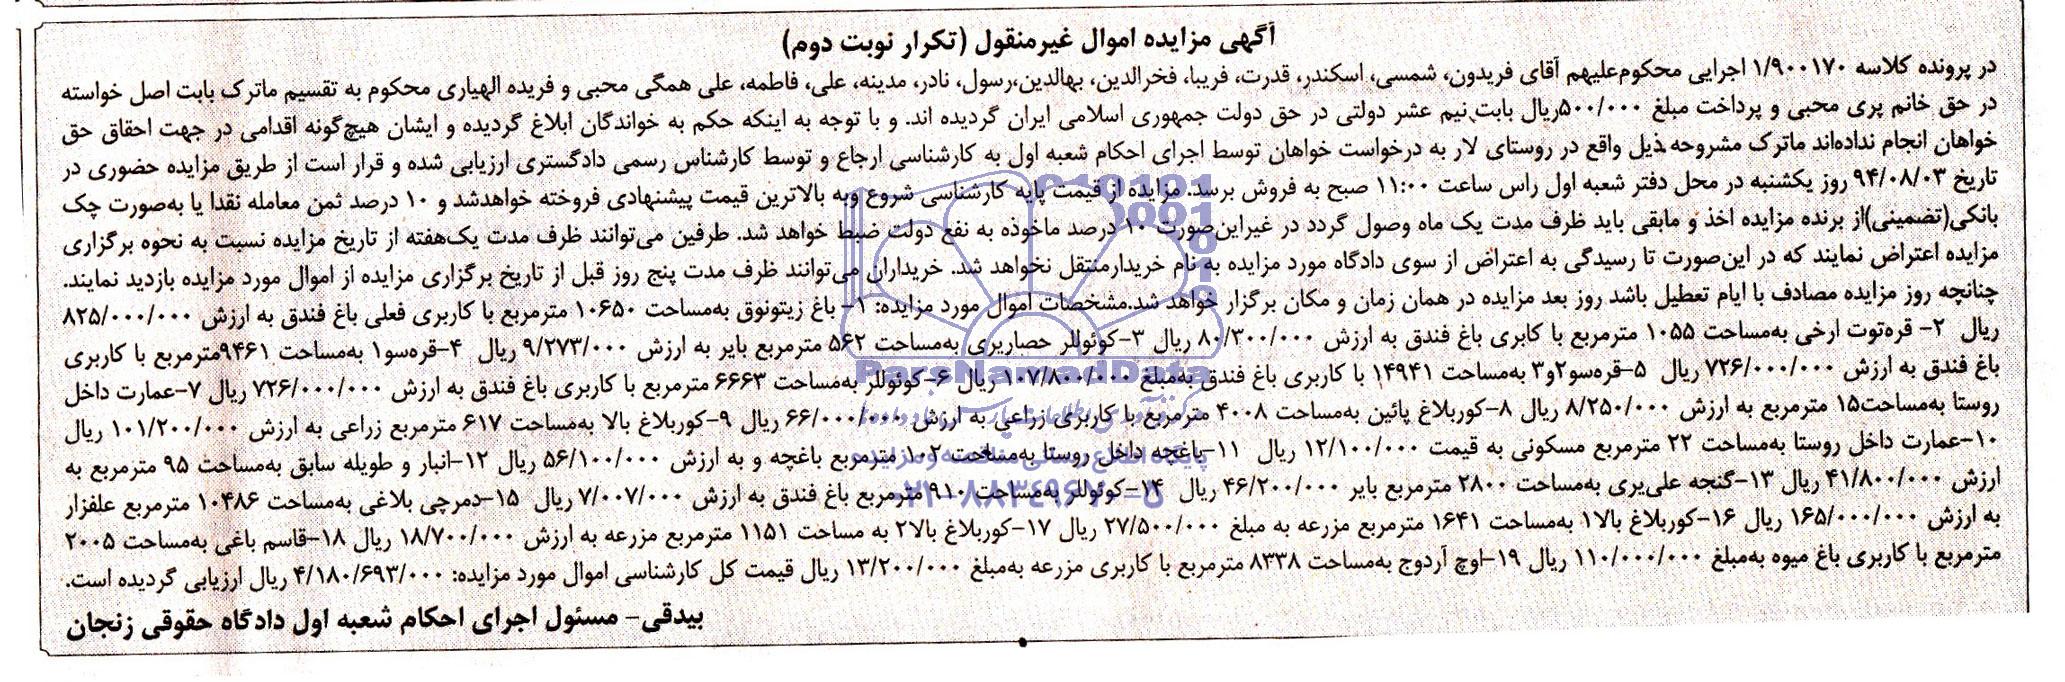 آگهی مزایده اموال غیرمنقول (تکرار نوبت دوم)
در پرونده کلاسه ۱/۹۰۰۱۷۰ اجرایی محکوم‌علیهم آقای فریدون، شمسی، اسکندر، قدرت، فریبا، فخرالدین، بهالدین،رسول، نادر، مدینه، علی، فاطمه، علی همگی محبی و فریده الهیاری محکوم به تقسیم ماترک بابت اصل خواسته
در حق خانم پری محبی و پرداخت مبلغ ۵۰۰/۰۰۰ریال بابت نیم عشر دولتی در حق دولت جمهوری اسلامی ایران گردیده اند. و با توجه به اینکه حکم به خواندگان ابلاغ گردیده و ایشان هیچ‌گونه اقدامی در جهت احقاق حق
خواهان انجام نداده‌اند ماترک مشروحه ذیل واقع در روستای لار به درخواست خواهان توسط اجرای احکام شعبه اول به کارشناسی ارجاع و توسط کارشناس رسمی دادگستری ارزیابی شده و قرار است از طریق مزایده حضوری در
تاریخ ۹۴/۰۸/۰۳ روز یکشنبه در محل دفتر شعبه اول راس ساعت ۱۱:۰۰ صبح به فروش برسد. مزایده از قیمت پایه کارشناسی شروع وبه بالاترین قیمت پیشنهادی فروخته خواهدشد و ۱۰ درصد ثمن معامله نقدا یا به‌صورت چک
بانکی(تضمینی)از برنده مزایده اخذ و مابقی باید ظرف مدت یک ماه وصول گردد در غیراین‌صورت ۱۰ درصد ماخوذه به نفع دولت ضبط خواهد شد. طرفین می‌توانند ظرف مدت یک‌هفته از تاریخ مزایده نسبت به نحوه برگزاری
مزایده اعتراض نمایند که در این‌صورت تا رسیدگی به اعتراض از سوی دادگاه مورد مزایده به نام خریدارمنتقل نخواهد شد. خریداران می‌توانند ظرف مدت پنج روز قبل از تاریخ برگزاری مزایده از اموال مورد مزایده بازدید نمایند.
چنانچه روز مزایده مصادف با ایام تعطیل باشد روز بعد مزایده در همان زمان و مکان برگزار خواهد شد.مشخصات اموال مورد مزایده: ۱- باغ زیتونوق به‌مساحت ۱۰۶۵۰ مترمربع با کاربری فعلی باغ فندق به ارزش ۸۲۵/۰۰۰/۰۰۰
ریال ۲- قره‌توت ارخی به‌مساحت ۱۰۵۵ مترمربع با کابری باغ فندق به ارزش ۸۰/۳۰۰/۰۰۰ ریال ۳-کوئوللر حصاریری به‌مساحت ۵۶۲ مترمربع بایر به ارزش ۹/۲۷۳/۰۰۰ ریال ۴-قره‌سو۱ به‌مساحت ۹۴۶۱مترمربع با کاربری
باغ فندق به ارزش ۷۲۶/۰۰۰/۰۰۰ ریال ۵-قره‌سو۲و۳ به‌مساحت ۱۴۹۴۱ با کاربری باغ فندق به‌مبلغ ۱۰۷/۸۰۰/۰۰۰ ریال ۶-کوئوللر به‌مساحت ۶۶۶۳ مترمربع با کاربری باغ فندق به ارزش ۷۲۶/۰۰۰/۰۰۰ ریال ۷-عمارت داخل
روستا به‌مساحت۱۵ مترمربع به ارزش ۸/۲۵۰/۰۰۰ ریال ۸-کوربلاغ پائین به‌مساحت ۴۰۰۸ مترمربع با کاربری زراعی به ارزش ۶۶/۰۰۰/۰۰۰ ریال ۹-کوربلاغ بالا به‌مساحت ۶۱۷ مترمربع زراعی به ارزش ۱۰۱/۲۰۰/۰۰۰ ریال
۱۰-عمارت داخل روستا به‌مساحت ۲۲ مترمربع مسکونی به قیمت ۱۲/۱۰۰/۰۰۰ ریال ۱۱-باغچه داخل روستا به‌مساحت ۱۰۲ مترمربع باغچه و به ارزش ۵۶/۱۰۰/۰۰۰ ریال ۱۲-انبار و طویله سابق به‌مساحت ۹۵ مترمربع به
ارزش ۴۱/۸۰۰/۰۰۰ ریال ۱۳-گنجه علی‌یری به‌مساحت ۲۸۰۰ مترمربع بایر ۴۶/۲۰۰/۰۰۰ ریال ۱۴-کوئوللر به‌مساحت ۹۱۰ مترمربع باغ فندق به ارزش ۷/۰۰۷/۰۰۰ ریال ۱۵-دمرچی بلاغی به‌مساحت ۱۰۴۸۶ مترمربع علفزار
به ارزش ۱۶۵/۰۰۰/۰۰۰ ریال ۱۶-کوربلاغ بالا۱ به‌مساحت ۱۶۴۱ مترمربع مزرعه به مبلغ ۲۷/۵۰۰/۰۰۰ ریال ۱۷-کوربلاغ بالا۲ به مساحت ۱۱۵۱ مترمربع مزرعه به ارزش ۱۸/۷۰۰/۰۰۰ ریال ۱۸-قاسم باغی به‌مساحت ۲۰۰۵
مترمربع با کاربری باغ میوه به‌مبلغ ۱۱۰/۰۰۰/۰۰۰ ریال ۱۹-اوچ آردوج به‌مساحت ۸۳۳۸ مترمربع با کاربری مزرعه به‌مبلغ ۱۳/۲۰۰/۰۰۰ ریال قیمت کل کارشناسی اموال مورد مزایده: ۴/۱۸۰/۶۹۳/۰۰۰ ریال ارزیابی گردیده است.
بیدقی- مسئول اجرای احکام شعبه اول دادگاه حقوقی زنجان
ParsNamadData